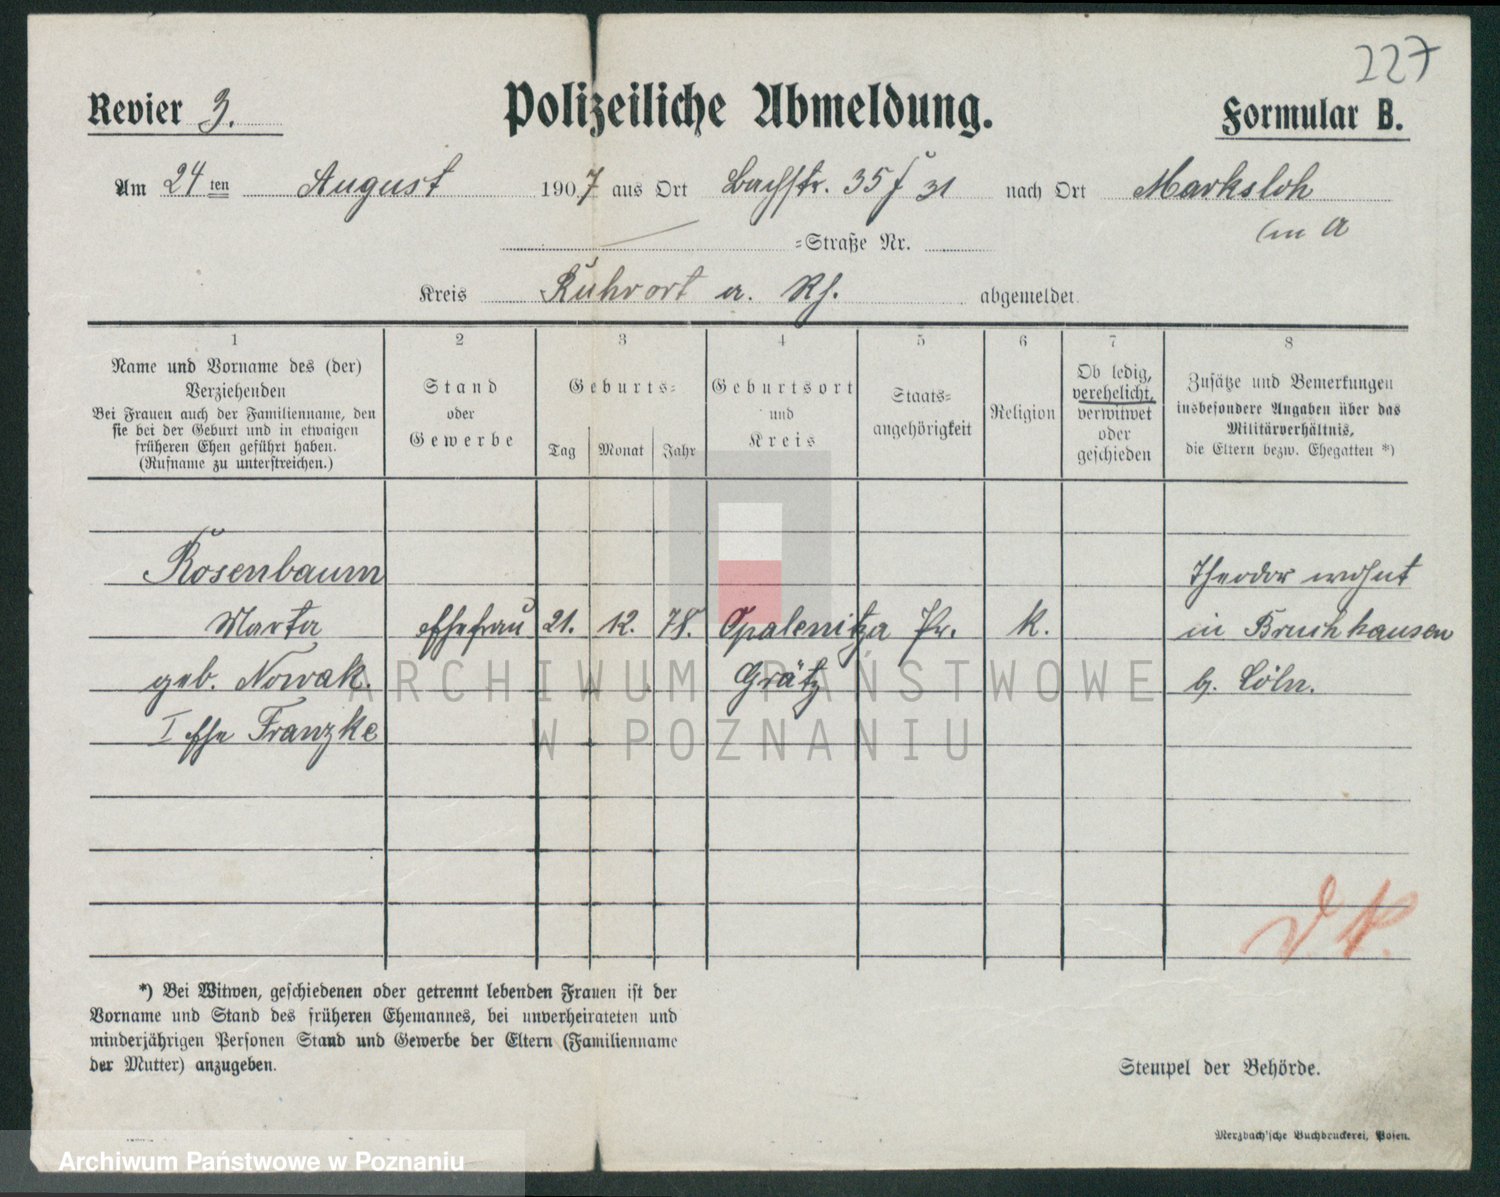 227
Revier 3.
Polizeiliche Abmeldung.
Formular B.
Am 24 ten August 1907 aus Ort Bachstr. 35 f 31 nach Ort Marksloh
=Straße Nr.
Kreis Ruhrort a. Rh. abgemeldet.
1 2 3 4 5 6 7 8
Name und Vorname des (der)
Verziehenden
Bei Frauen auch der Familienname, den
sie bei der Geburt und in etwaigen
früheren Ehen geführt haben.
(Rufname zu unterstreichen.)
Stand
oder
Gewerbe
Geburts=
Tag Monat Jahr
Geburtsort
und
Kreis
Staats=
angehörigkeit
Religion
Ob ledig,
verehelicht,
verwitwet
oder
geschieden
Zusätze und Bemerkungen
insbesondere Angaben über das
Militärverhältnis,
die Eltern bezw. Ehegatten *)
Rosenbaum Theodor wohnt
Marta Ehefrau 21. 12. 78. Opalenitza Pr. k. in Bruckhausen
geb. Nowak. Grätz b. Cöln.
I Ehe Franzke
ARCHIWUM PAŃSTWOWE
W POZNANIU
*) Bei Witwen, geschiedenen oder getrennt lebenden Frauen ist der
Vorname und Stand des früheren Ehemannes, bei unverheirateten und
minderjährigen Personen Stand und Gewerbe der Eltern (Familienname
der Mutter) anzugeben.
Stempel der Behörde.
Merzbach'sche Buchdruckerei, Posen.
Archiwum Państwowe w Poznaniu